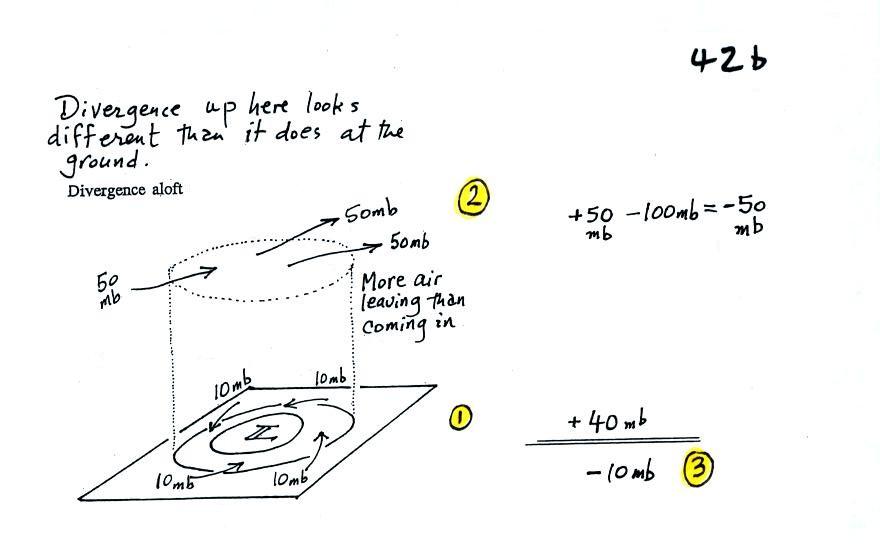 42b
Divergence up here looks
different than it does at the
ground.
Divergence aloft
2
50mb
50mb
50
mb
More air
leaving than
coming in
+50 -100mb = -50
mb mb
10mb 10mb
L
10mb 10mb
1
+ 40 mb
- 10 mb 3